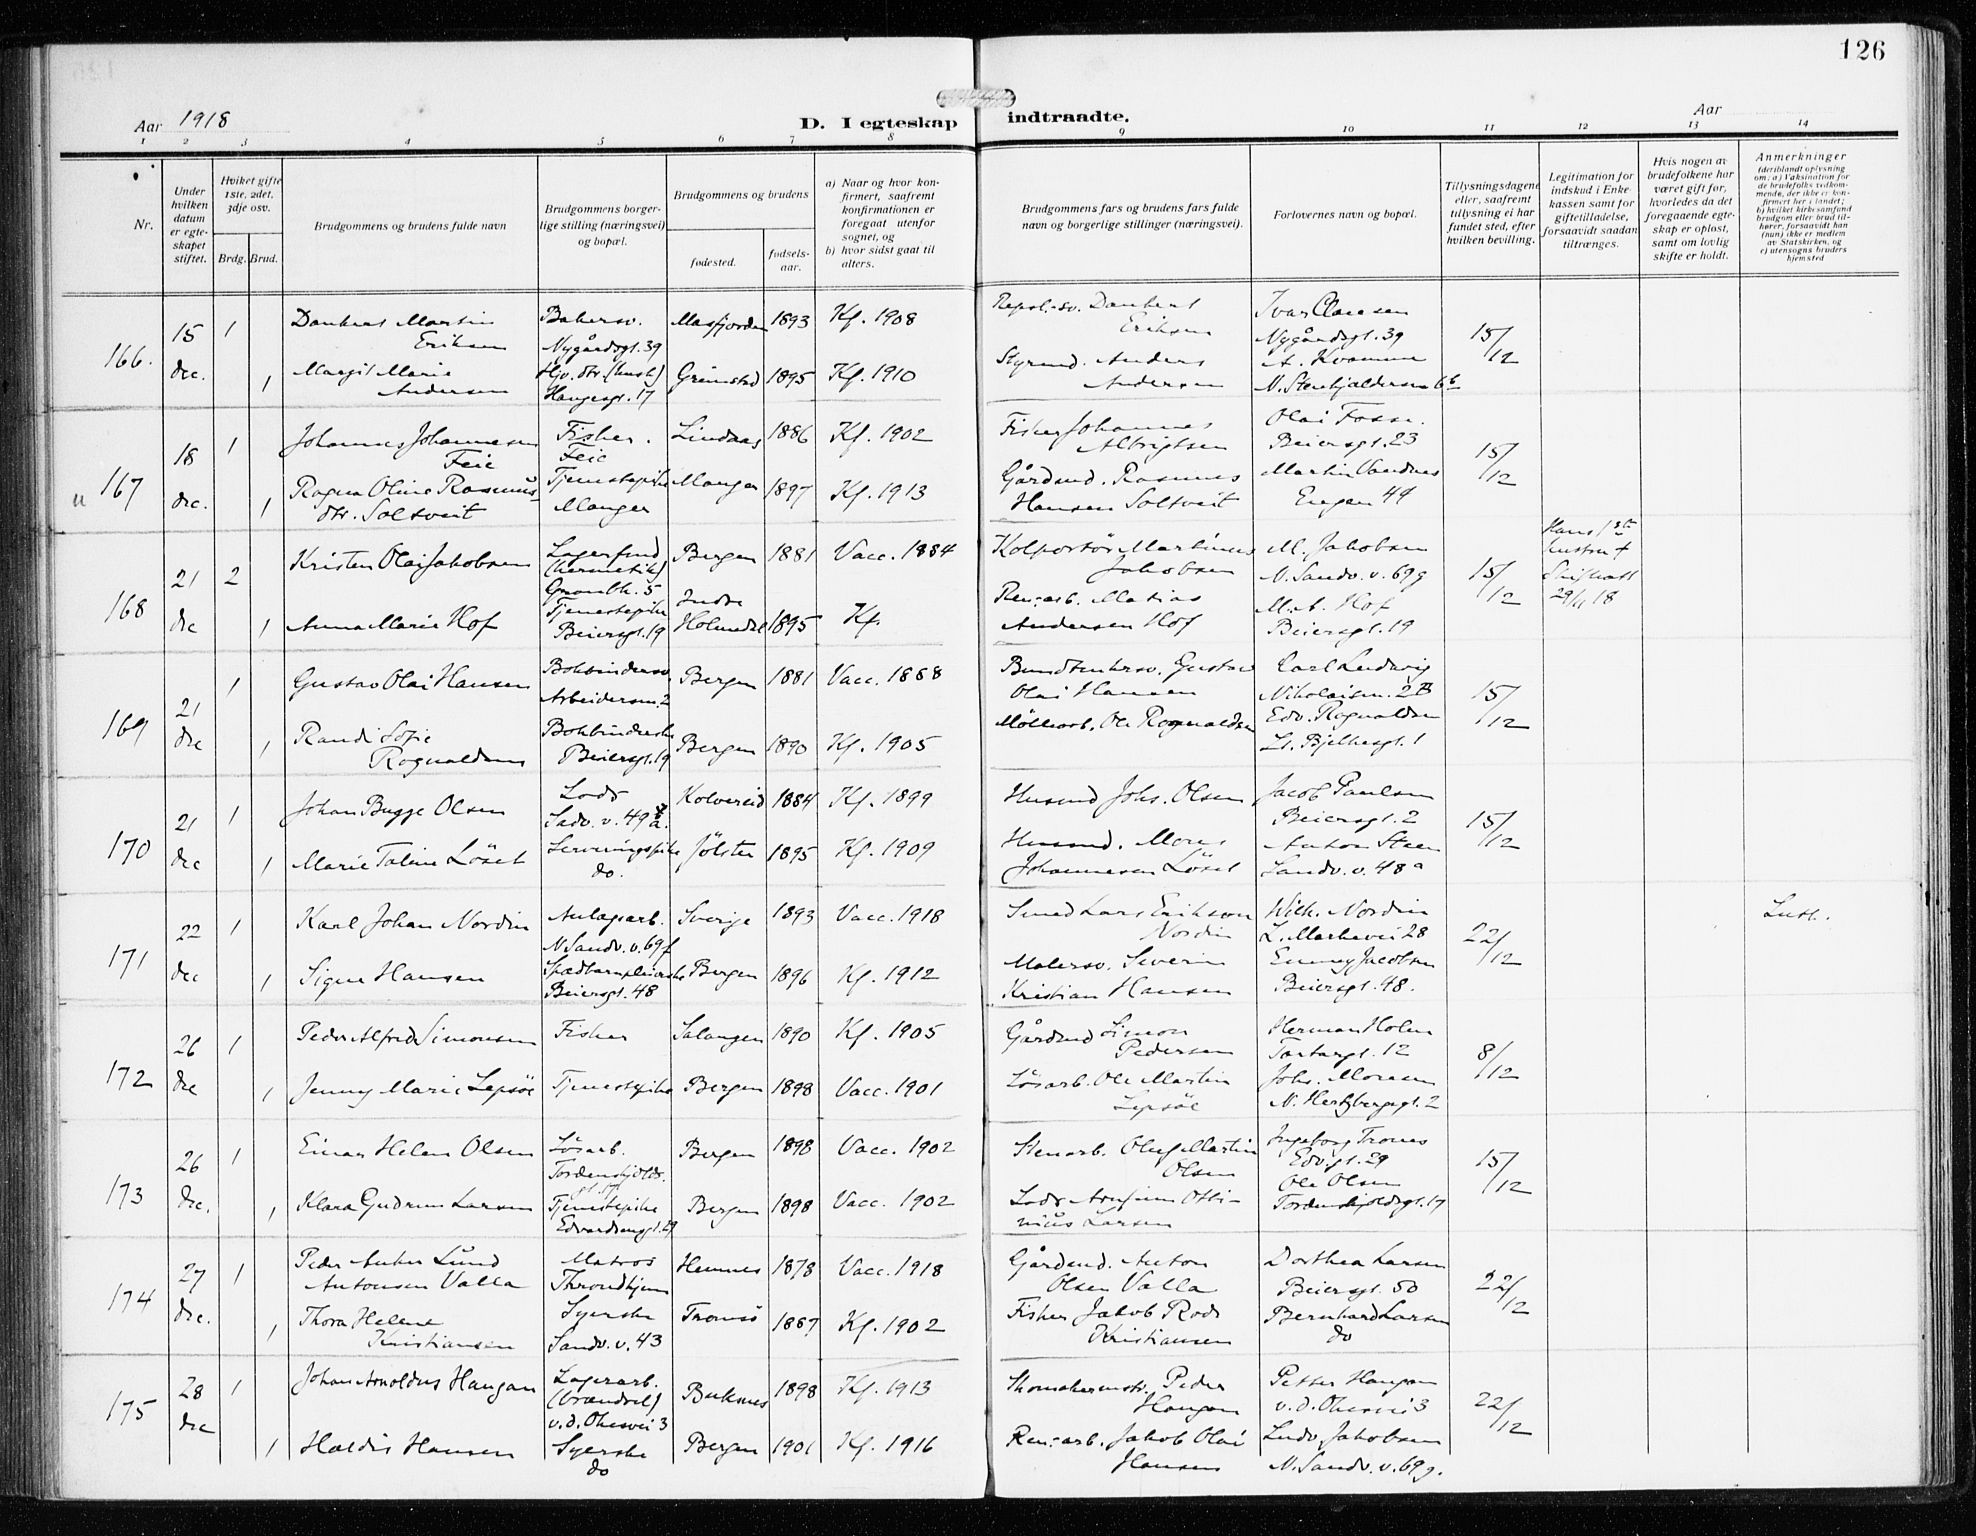 126
Aar 1918
D. I egteskap indtraadte.
Aar
1 2 3 4 5 6 7 8 9 10 11 12 13 14
Nr.
Under hvilken datum er egteskapet stiftet.
Hviket gifte 1ste, 2det, 3dje osv.
Brdg. Brud.
Brudgommens og brudens fulde navn
Brudgommens borgerlige stilling (næringsvei) og bopæl.
Brudgommens og brudens
fødested.
fødselsaar.
a) Naar og hvor konfirmert, saafremt konfirmationen er foregaat utenfor sognet, og
b) hvor sidst gaat til alters.
Brudgommens fars og brudens fars fulde navn og borgerlige stillinger (næringsvei).
Forlovernes navn og bopæl.
Tillysningsdagene eller, saafremt tillysning ei har fundet sted, efter hvilken bevilling.
Legitimation for indskud i Enkekassen samt for giftetilladelse, forsaavidt saadan tiltrænges.
Hvis nogen av brudefolkene har været gift før, hvorledes da det foregaaende egteskap er opløst, samt om lovlig skifte er holdt.
Anmerkninger
(deriblandt oplysning om: a) Vaksination for de brudefolks vedkommende, der ikke er konfirmert her i landet; b) hvilket kirkesamfund brudgom eller brud tilhører, forsaavidt han (hun) ikke er medlem av Statskirken, og c) utensogns bruders hjemsted
166. 15 dec. 1
Martin Eriksen
Bakersv.
Nygårdsgt. 39
Masfjorden 1893 Kf. 1908
Eriksen
Ivar Clausen
Nygårdsgt. 39
15/12
1 Margit Marie Andersen
Haugesgt. 17
Grimstad 1895 Kf. 1910
Styrmd. Anders Andersen
A. Kvamme
167 18 dec. 1
Johannes Johannesen Feie
Fisker.
Feie
Lindaas 1886 Kf. 1902
Fisker Johannes Albrigtsen
Olai Fosse.
Beiersgt. 23
15/12
1 Ragna Oline Rasmusdtr. Soltveit
Tjenestepike
Manger
Manger 1897 Kf. 1913
Gårdmd. Rasmus Hansen Soltveit
Martin Vandnes
Engen 44
168 21 dec 2
Kristen Olai Jakobsen
Lagerfmd (hermetik)
Bergen 1881 Vacc. 1884
Kolportør Martinus Jakobsen
M. Jakobsen
N. Sandv. v. 69g
15/12
Hans 1ste hustru +
Skifteatt 29/11 18
1 Anna Marie Hof
Tjenestepike
Beiersgt. 19
Indre Holmedal 1895 Kf.
Ren:arb. Matias Andersen Hof
M. A. Hof
Beiersgt. 19
169 21 dec 1
Gustav Olai Hansen
Bokbindersv
Arbeidersm. 2
Bergen 1881 Vacc. 1888
Bundtmakersv. Gustav Olai Hansen
Carl Ludvig
Nikolaism. 2B
15/12
1 Randi Sofie Rognaldsen
Bokbinderske
Beiersgt. 19
Bergen 1890 Kf. 1905
Møllearb. Ole Rognaldsen
Edv. Rognaldsen
170 21 dec 1
Johan Bugge Olsen
Lods
Kolvereid 1884 Kf. 1899
Husmd Johs. Olsen
Jacob Paulsen
Beiersgt. 2
15/12
1 Marie Taline Løset
Serveringspike
do.
Jølster 1895 Kf. 1909
Husmd. Mons Johannesen Løset
Anton Steen
Sandv. v. 48a
171 22 dec 1
Karl Johan Nordin
Anlægsarb.
N Sandv. v. 69f
Sverige 1893 Vacc. 1918
Smed Lars Erikson Nordin
Wilh. Nordin
L. Markevei 28
22/12
Luth.
1 Signe Hansen
Spædbarnpleierske
Beiersgt. 48
Bergen 1896 Kf. 1912
Malersv. Severin Kristian Hansen
Emmy Jacobsen
Beiersgt. 48.
172 26 dec 1
Peder Alfred Simonsen
Fisker
Salangen 1890 Kf. 1905
Gårdmd Simon Pedersen
Herman Holm
Tartargt. 12
8/12
1 Jenny Marie Lepsøe
Tjenestepike
Bergen 1898 Vacc. 1901
Løsarb. Ole Martin Lepsøe
Johs. Monsen
N. Hertzbergsgt. 2
173 26 dec. 1
Einar Helen Olsen
Løsarb.
Tordenskjolds. gt. 17
Bergen 1898 Vacc. 1902
Stenarb. Oluf Martin Olsen
Ingeborg Tronæs
Edv.gt. 29
15/12
1 Klara Gudrun Larsen
Tjenestepike
Edvardsengt. 29
Bergen 1898 Vacc. 1902
Larsen
Ole Olsen
Tordenskjoldsgt. 17
174 27 dec. 1
Peder Anker Lund Antonsen Valla
Matros
Throndhjem
Hemnes 1878 Vacc. 1918
Gårdmd. Anton Olsen Valla
Dorthea Larsen
Beiersgt. 50
22/12
1 Thora Helene Kristiansen
Syerske
Sandv. v. 43
Tromsø 1887 Kf. 1902
Fisker Jakob Rods Kristiansen
Bernhard Larsen
do
175 28 dec 1
Johan Arnoldus Haugan
Lagerarb.
(brændsel)
v. d. Ohesvei 3
Buksnes 1898 Kf. 1913
Skomakermstr. Peder Haugan
Petter Haugan
v. d. Ohesvei 3
22/12
1 Haldis Hansen
Syerske
do
Bergen 1901 Kf. 1916
Ren:arb. Jakob Olai Hansen
Ludv. Jakobsen
N. Sandv. v. 69g.